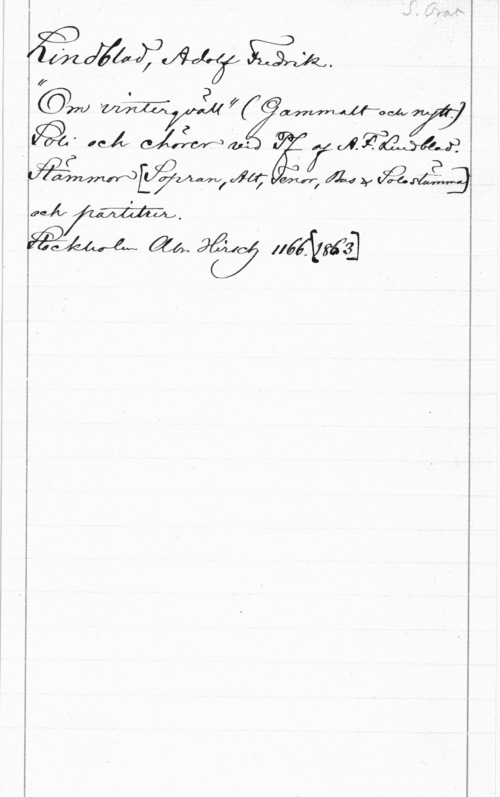 S. Orat
Lindblad, Adolf Fredrik.
"Om vinterqväll" (Gammalt och nytt.)
Soli och chörer vid Pf af A. F. Lindblad.
Stämmor [Sopran, Alt, Tenor, Bas & Solostämma]
och partitur.
Stockholm Abr. Hirsch 1166. [1863]